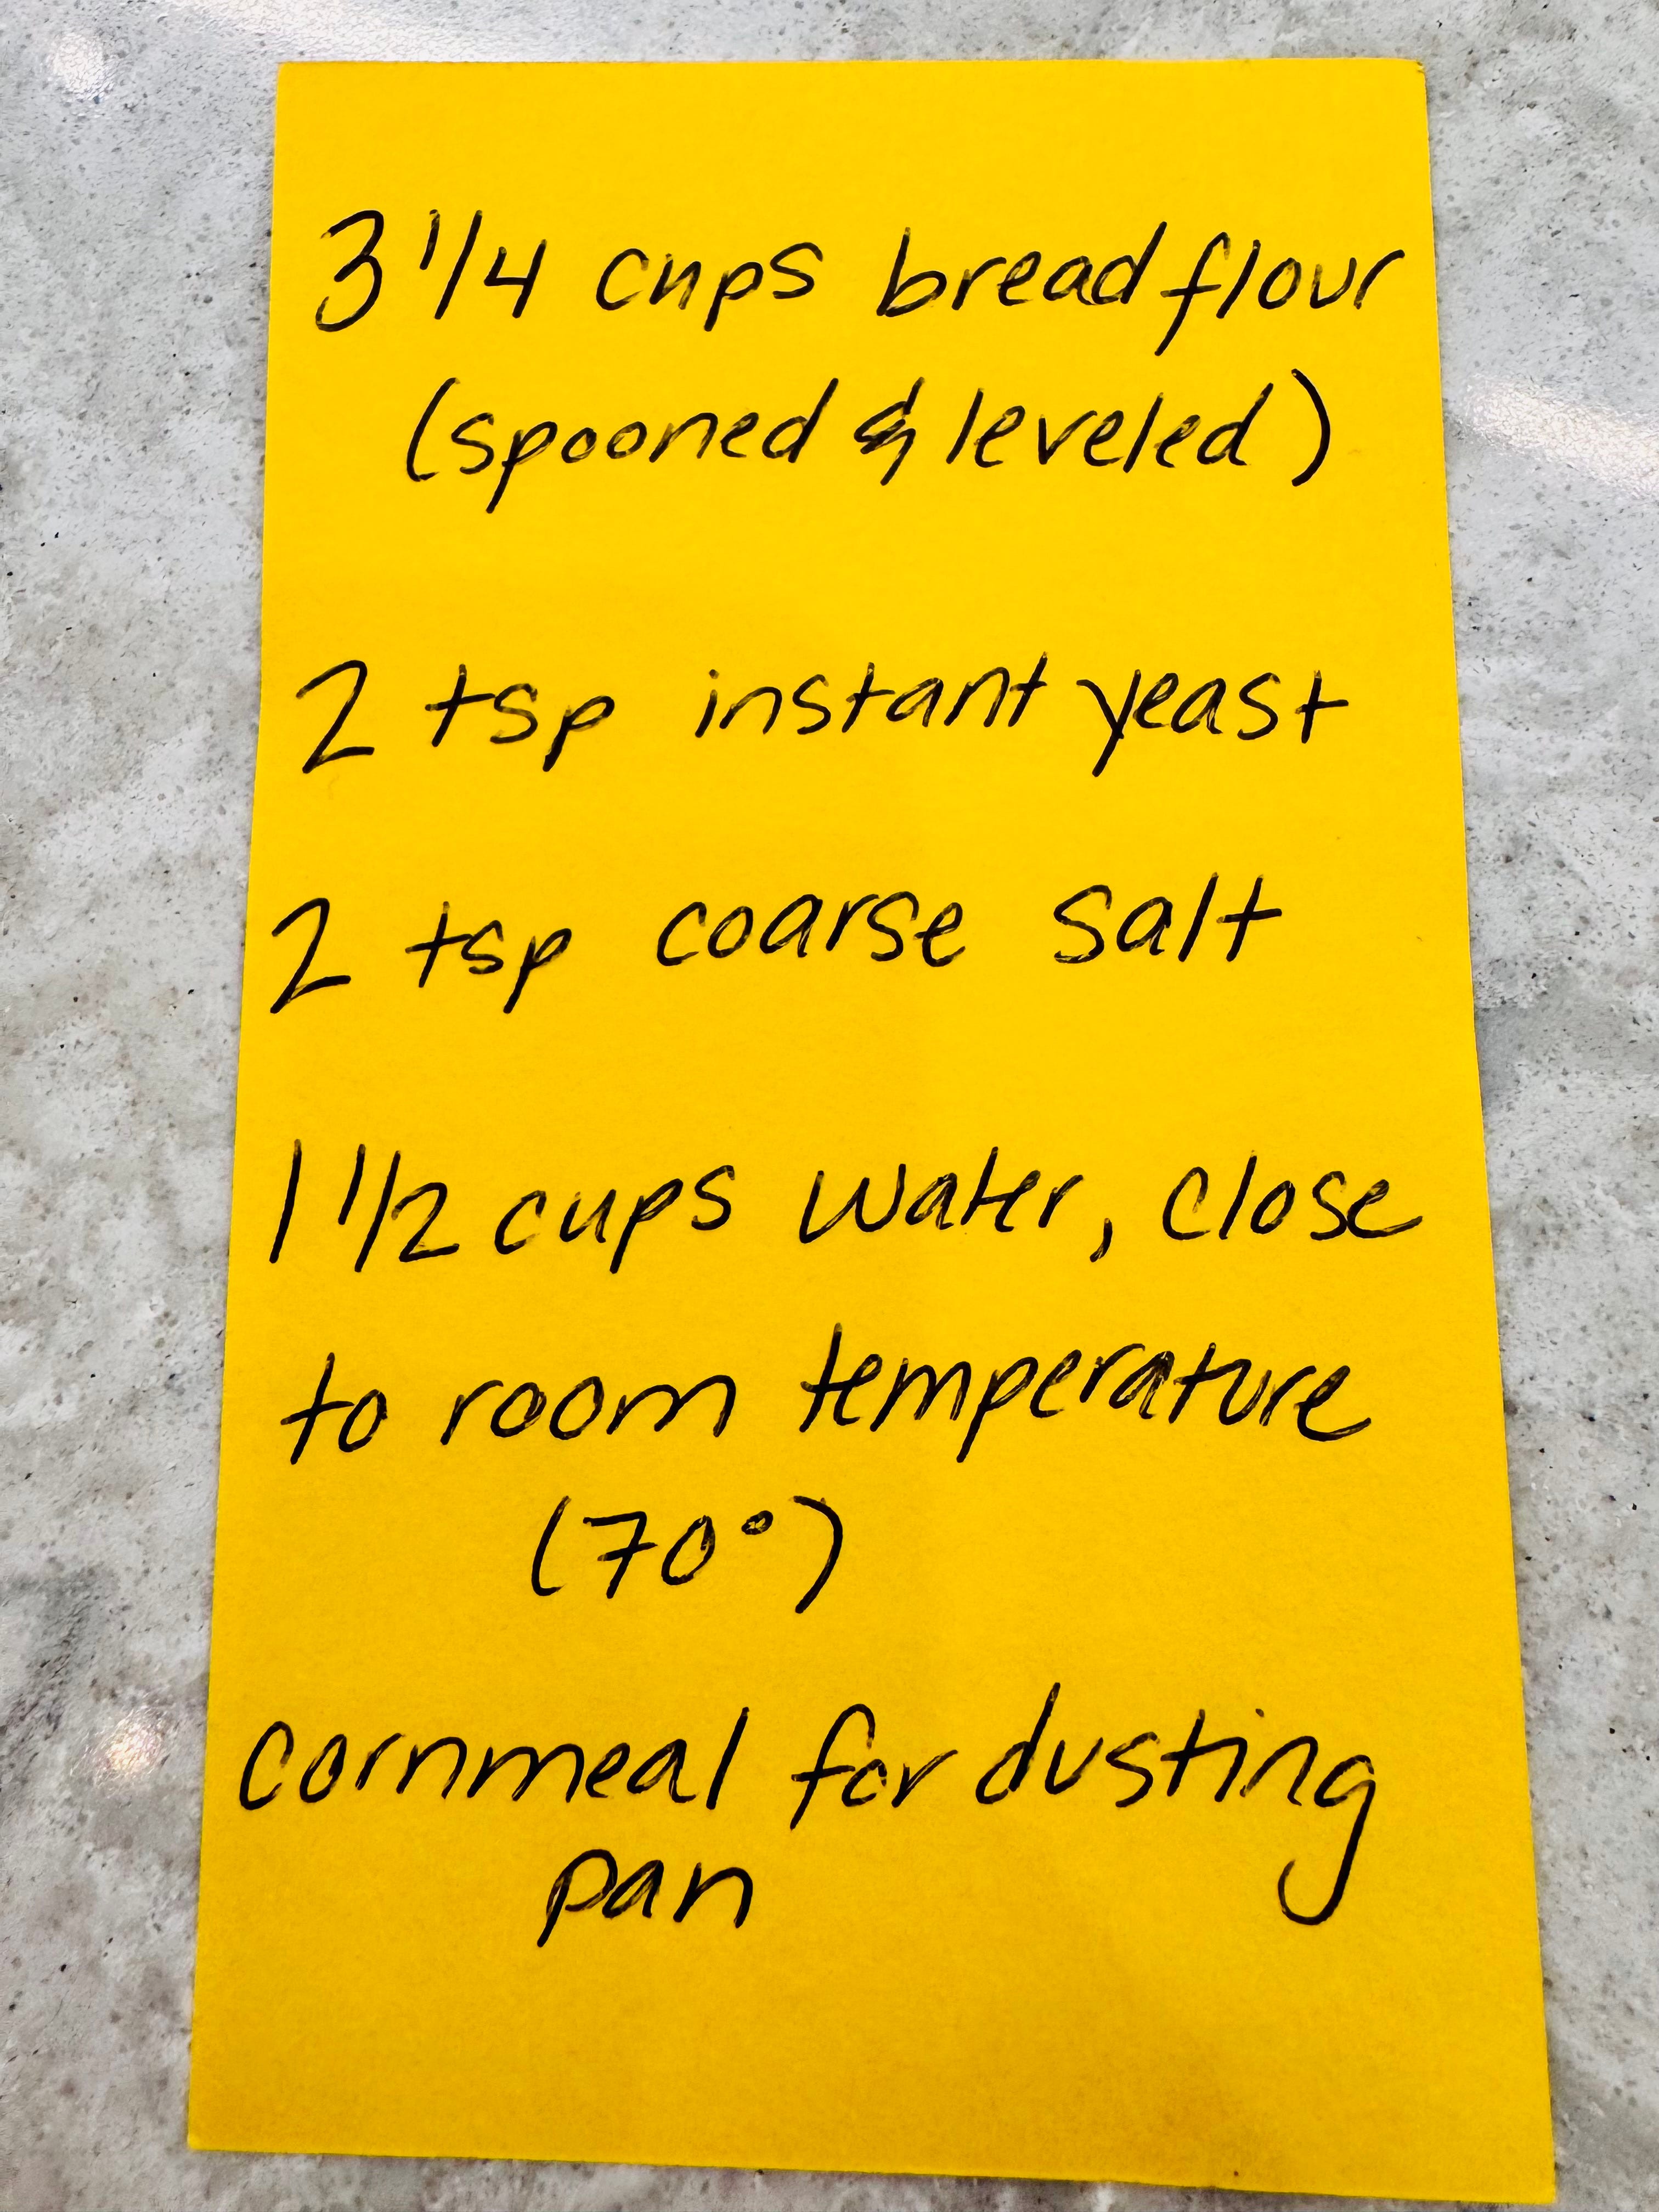 3 1/4 cups bread flour
(spooned & leveled)
2 tsp instant yeast
2 tsp coarse salt
1 1/2 cups water, close
to room temperature
(70°)
cornmeal for dusting
pan